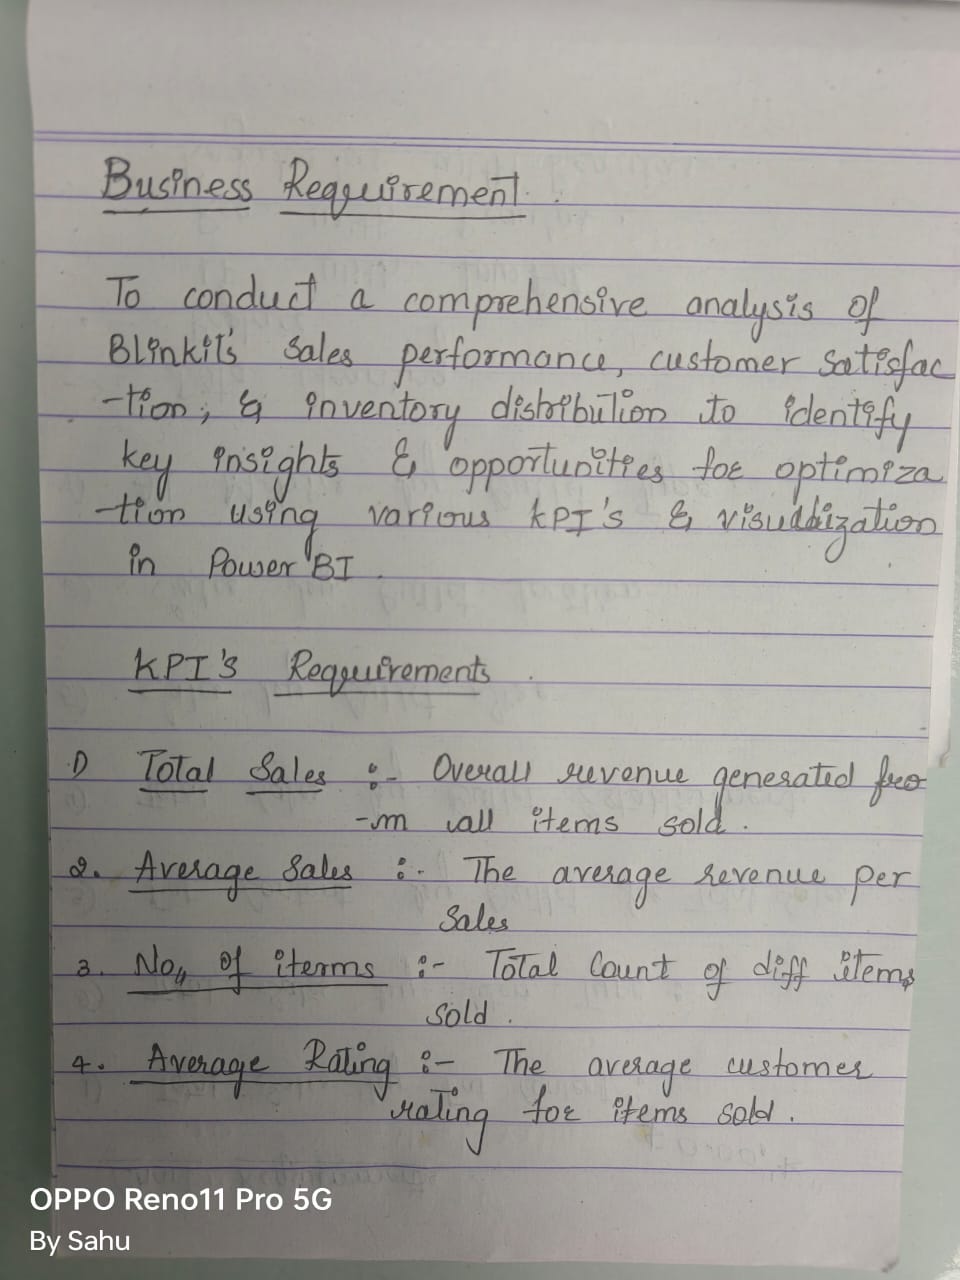 Business Requirement.
To conduct a comprehensive analysis of
Blinkit's Sales performance, customer Satisfac
-tion, & inventory distribution to identify
key insights & opportunities for optimiza
-tion using various KPI's & visualization
in Power BI.
KPI's Requirements.
1) Total Sales :- Overall revenue generated fro
-m all items sold.
2. Average Sales :- The average revenue per
Sales
3. No,, of iterms :- Total Count of diff items
Sold.
4. Average Rating :- The average customer
rating for items sold.
OPPO Reno11 Pro 5G
By Sahu